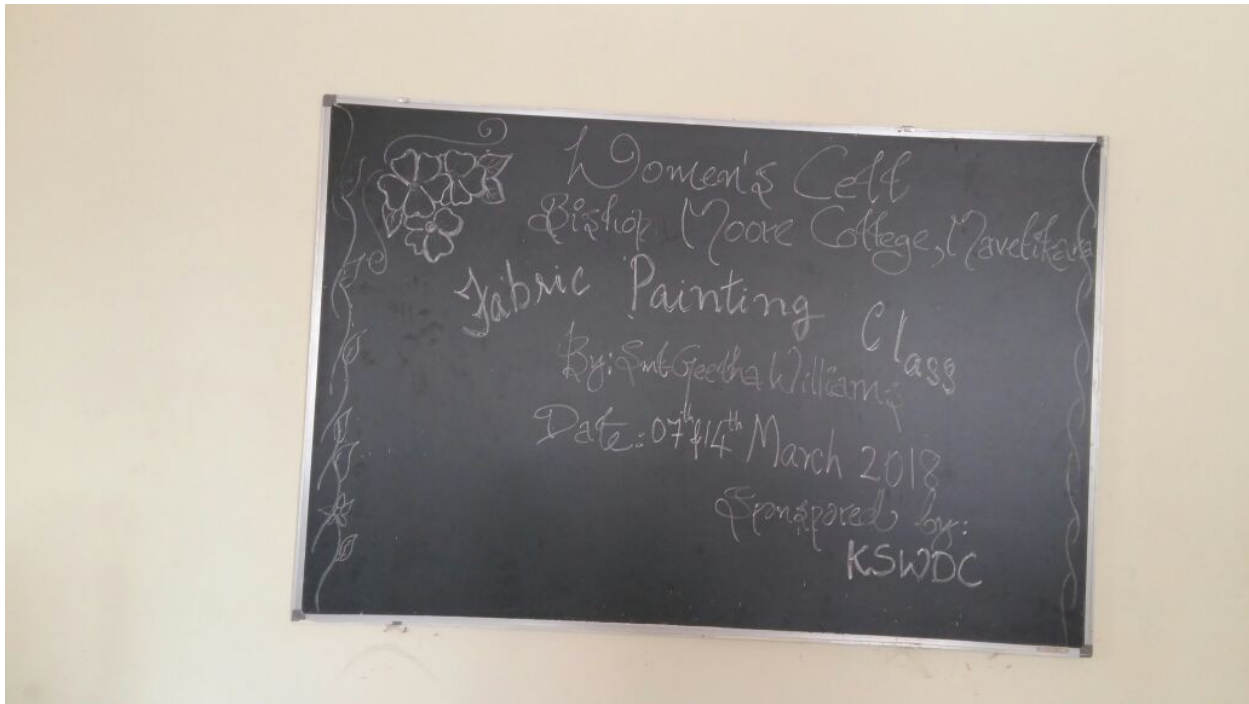 Women's Cell
Bishop Moore College, Mavelikara
Fabric Painting Class
By: Smt Geetha Williams
Date: 07th & 14th March 2018
Sponsored by:
KSWDC